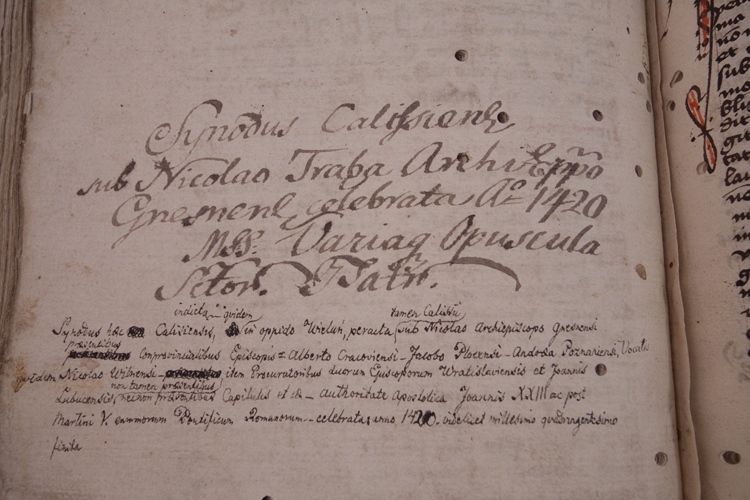 Synodus Calissiens
sub Nicolao Traba Archi Eppo
Gnesnens celebrata Aº 1420
Mss. Variaq Opuscula
Sctor. Patr.
indicta quidem tamen Calissii
Synodus haec Calisiensis, in oppido Wieluń, peracta sub Nicolao Archiepiscopo Gnesnensi
praesentibus Conprovincialibus Episcopis = Alberto Cracoviensi - Jacobo Plocensi - Andrea Poznaniensi,
quidem Nicolao Wilnensi - item Procuratoribus duorum Episcoporum Wratislaviensis et Joannis
non tamen praesentibus
Lubucensis, Capitulis et - Authoritate Apostolica Joannis XXIII ac post
Martini V. summorum Pontificum Romanorum - celebrata, anno 1420. videlicet millesimo quadringentesimo
finita